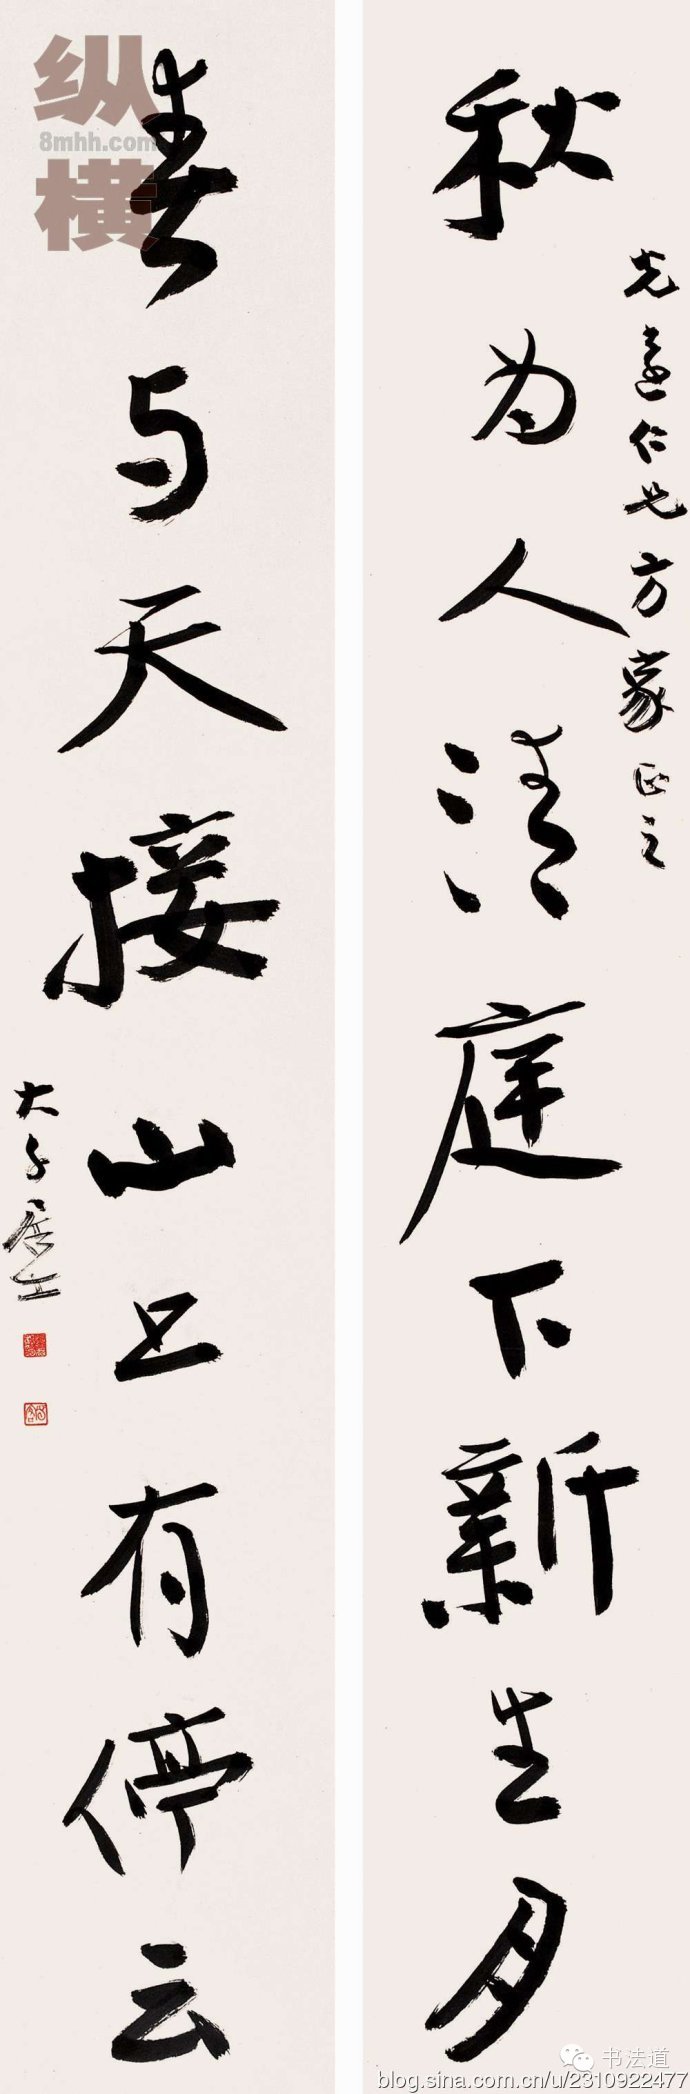 先达仁兄方家正之
秋为人清庭下新生月
春与天接山上有停云
大千居士
纵
8mhh.com
横
书法道
blog.sina.com.cn/u/2310922477